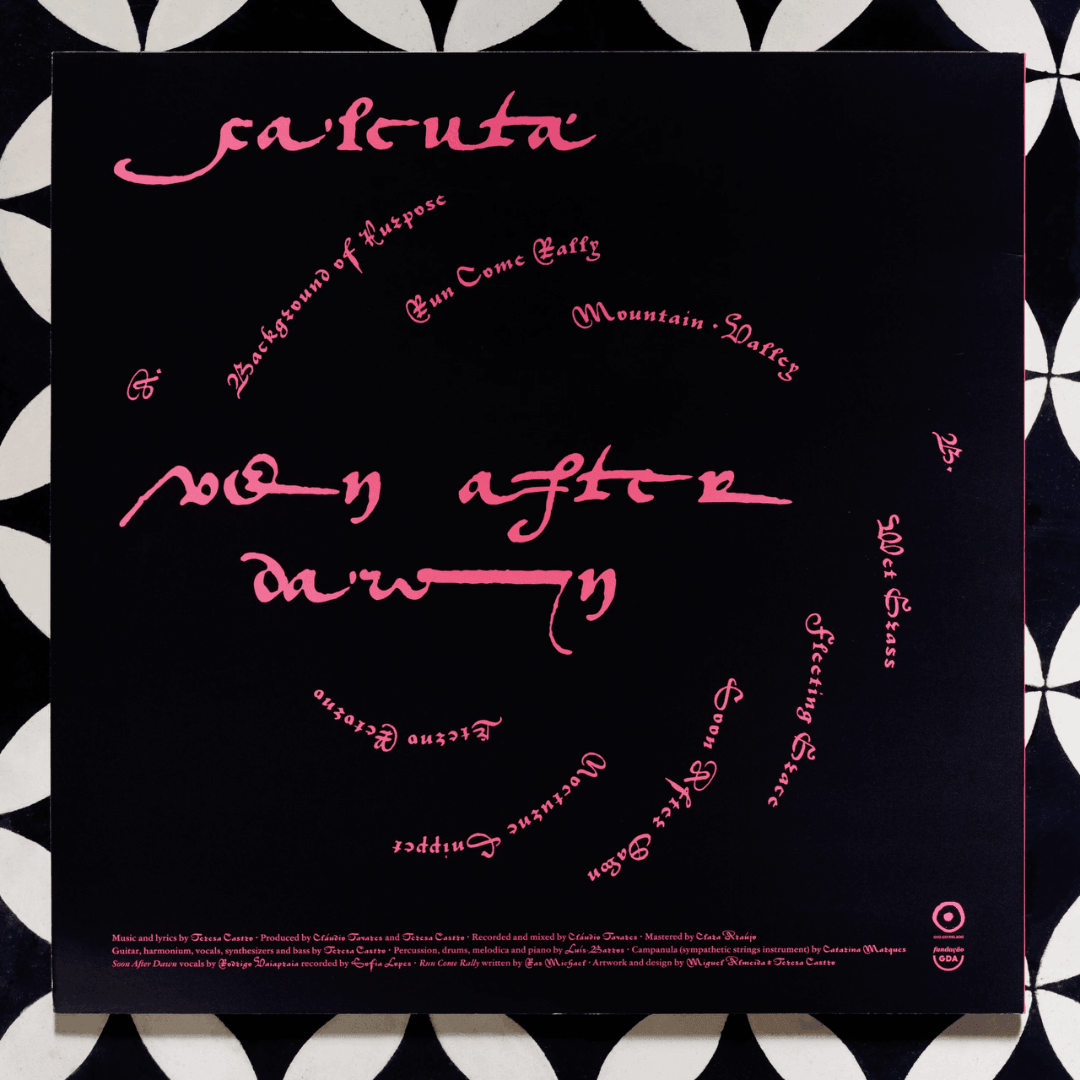 calcutá
A.
Background of Purpose
Run Come Rally
Mountain · Valley
soon after
dawn
B.
Wet Grass
Fleeting Grace
Soon After Dawn
Nocturne Snippet
Eterno Retorno
Music and lyrics by Teresa Castro · Produced by Cláudio Tavares and Teresa Castro · Recorded and mixed by Cláudio Tavares · Mastered by Clara Araújo
Guitar, harmonium, vocals, synthesizers and bass by Teresa Castro · Percussion, drums, melodica and piano by Luís Barros · Campanula (sympathetic strings instrument) by Catarina Marques
Soon After Dawn vocals by Rodrigo Vaiapraia recorded by Sofia Lopes · Run Come Rally written by Ras Michael · Artwork and design by Miguel Almeida e Teresa Castro
fundação
GDA